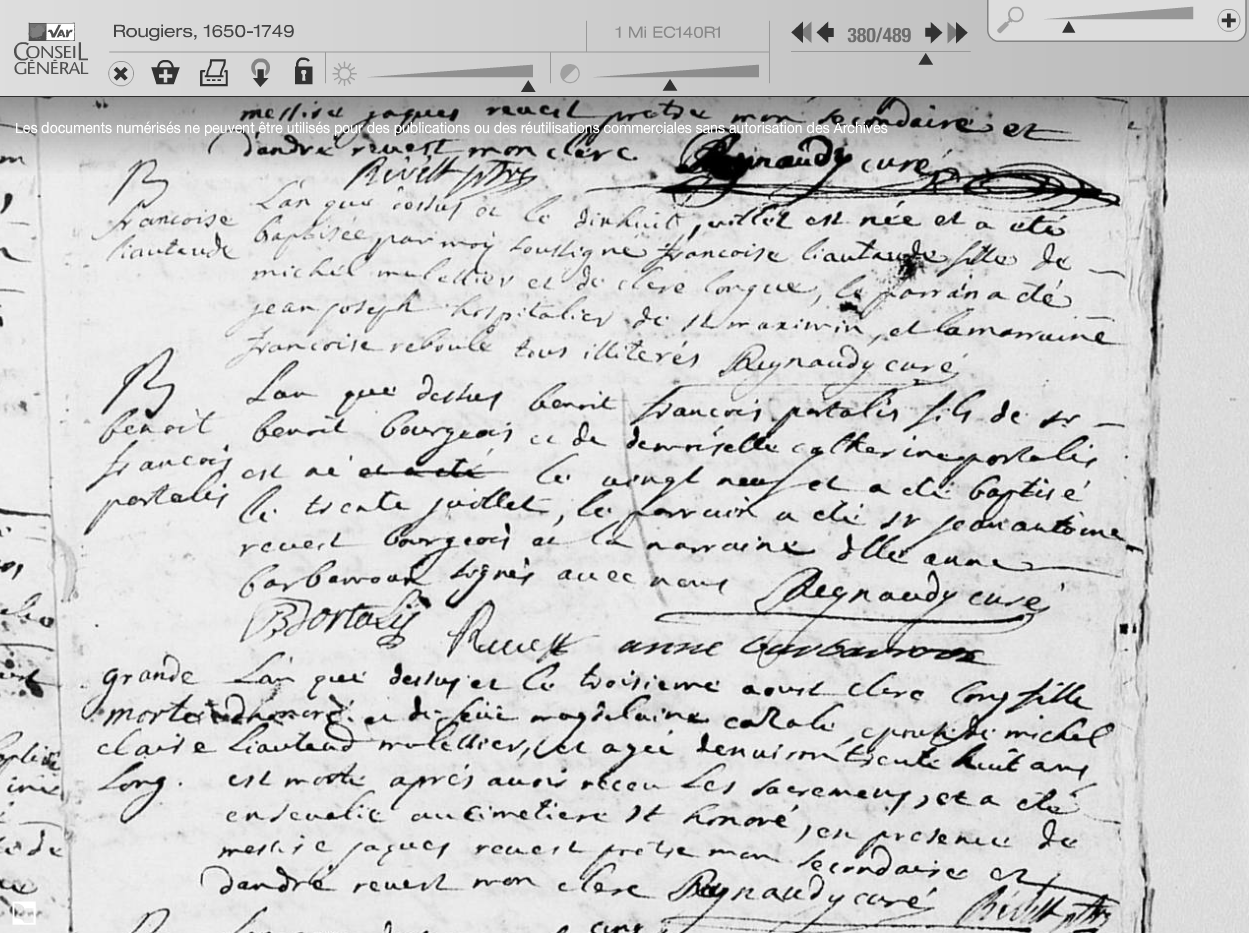 VAR
CONSEIL
GÉNÉRAL
Rougiers, 1650-1749
1 Mi EC140R1
380/489
messire jaques revest pretre mon secondaire et
Les documents numérisés ne peuvent être utilisés pour des publications ou des réutilisations commerciales sans autorisation des Archives
dandré revest mon clerc Reynaudy curé
B
francoise
liautaude
Lan que dessus et le dixhuit juillet est née et a eté
baptisée par moy soussigné francoise liautaude fille de
michel mulettier et de clere longue, le parrain a eté
jean joseph hospitalier de st maximin, et la marraine
francoise reboule tous illiterés Reynaudy curé
B
benoit
francois
portalis
Lan que dessus benoit francois portalis fils de sr
benoit bourgeois et de demoiselle catherine portalis
est né et a eté le vingt neuf et a eté baptisé
le trente juillet, le parrain a eté sr jean antoine
revest bourgeois et la marraine dlle anne
barbarroux signés avec nous Reynaudy curé
Portalis Revest anne barbarroux
grande
morte
claire
Long.
Lan que dessus et le troisieme aoust clere long fille
et de feüe magdelaine
michel
Liautaud mulettier, et agée denviron trente huit ans
est morte aprés avoir receu les sacremens, et a eté
ensevelie au cimetiere st honoré, en presence de
messire jaques revest pretre mon secondaire et
dandré revest mon clerc Reynaudy curé